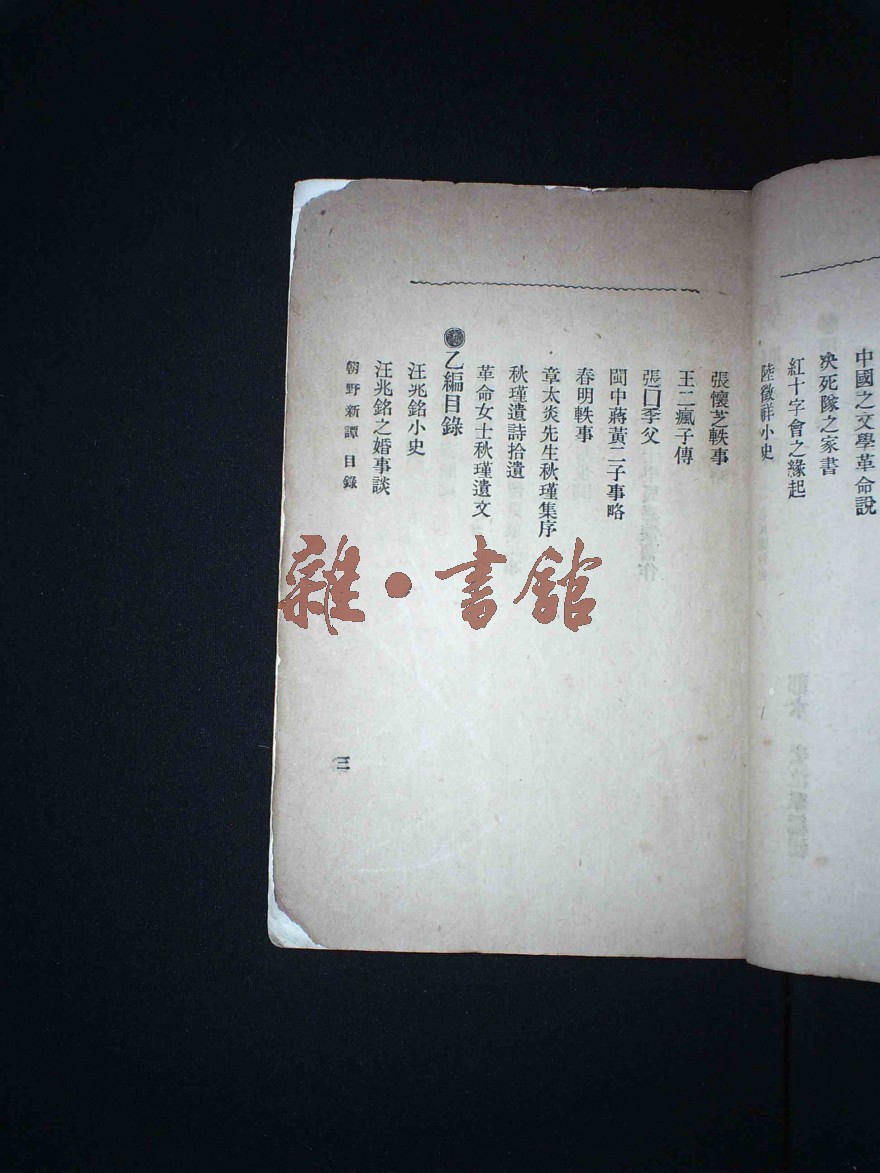 中國之文學革命說
决死隊之家書
紅十字會之緣起
陸徵祥小史
張懷芝軼事
王二瘋子傳
張囗季父
閩中蔣黃二子事略
春明軼事
章太炎先生秋瑾集序
秋瑾遺詩拾遺
革命女士秋瑾遺文
乙編目錄
汪兆銘小史
汪兆銘之婚事談
朝野新譚 目錄
三
雜·書館